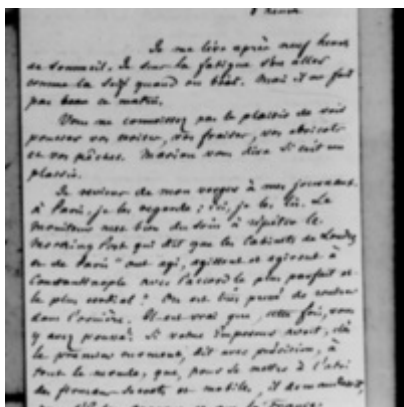 8 heures
Je me lève après neuf heures
de sommeil. Je sens la fatigue s'en aller
comme la soif quand on boit. Mais il ne fait
pas beau ce matin.
Vous ne connaissez pas le plaisir de voir
pousser vos noises, vos fraises, vos abricots
et vos pêches. Marion vous dira si c'est un
plaisir.
Je reviens de mon verger à mes journaux.
à Paris, je les regarde ; ici, je les lis. Le
moniteur met bien du soin à répéter le
Morning Post qui dit que les Cabinets de Londres
et de Paris "ont agi, agissent et agiront à
Constantinople avec l'accord le plus parfait et
le plus cordial". On est bien pressé de rentrer
dans l'ornière. Il est vrai que, cette fois, vous
y avez poussé. Si votre Empereur avait, dès
le premier moment, dit avec précision, à
tout le monde, que, pour se mettre à l'abri
des firmans secrets et mobiles, il demandait,